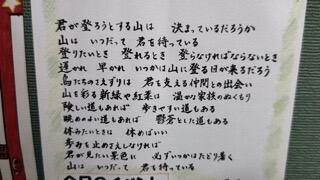 君が登ろうとする山は 決まっているだろうか
山は いつだって 君を待っている
登りたいとき 登れるとき 登らなければならないとき
遅かれ 早かれ いつかは山に登る日が来るだろう
鳥たちのさえずりは 君を支える仲間との出会い
山を彩る新緑や紅葉は 温かな家族のぬくもり
険しい道もあれば 歩きやすい道もある
眺めのよい道もあれば 鬱蒼とした道もある
休みたいときは 休めばいい
歩みを止めさえしなければ
君が見たい景色に 必ずいつかはたどり着く
山は いつだって 君を待っている